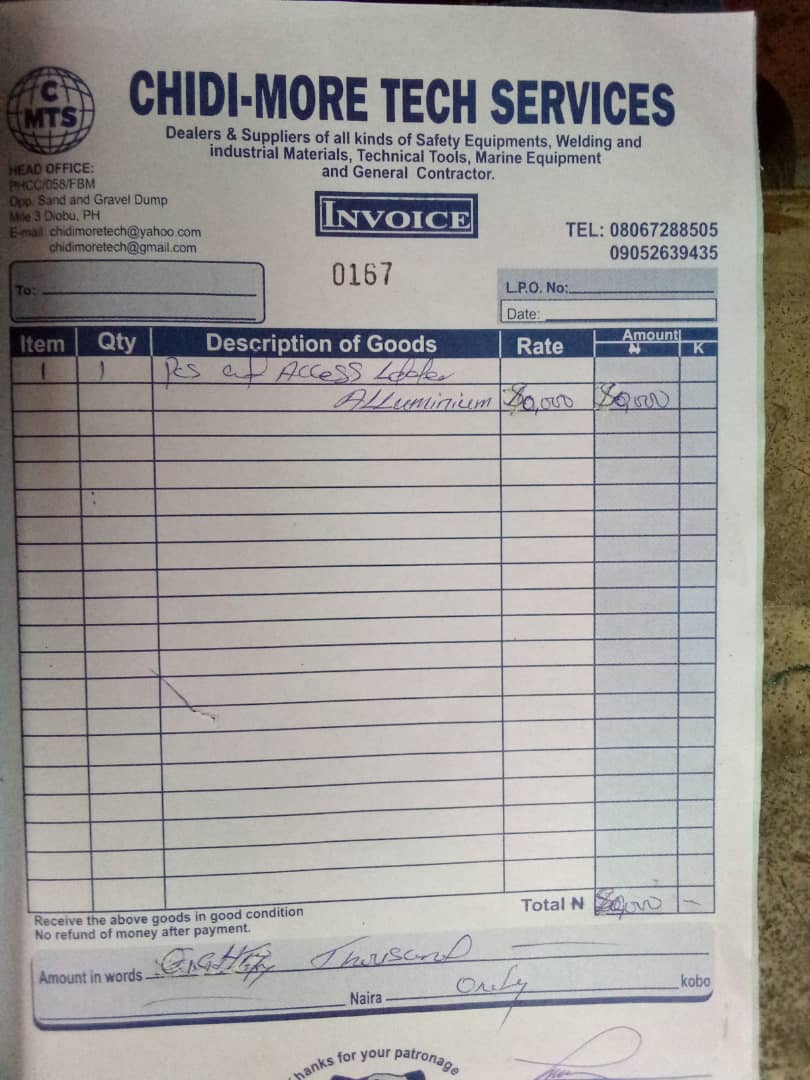 C
MTS
CHIDI-MORE TECH SERVICES
Dealers & Suppliers of all kinds of Safety Equipments, Welding and
industrial Materials, Technical Tools, Marine Equipment
and General Contractor.
HEAD OFFICE:
PHCC/058/FBM
Opp. Sand and Gravel Dump
Mile 3 Diobu, PH
E-mail: chidimoretech@yahoo.com
chidimoretech@gmail.com
INVOICE
TEL: 08067288505
09052639435
0167
To:
L.P.O. No:
Date:
Item Qty Description of Goods Rate Amount
₦ K
1 1 Pcs Access
ALLuminium
Total ₦ -
Receive the above goods in good condition
No refund of money after payment.
Amount in words Thousand
Naira Only kobo
hanks for your patronage